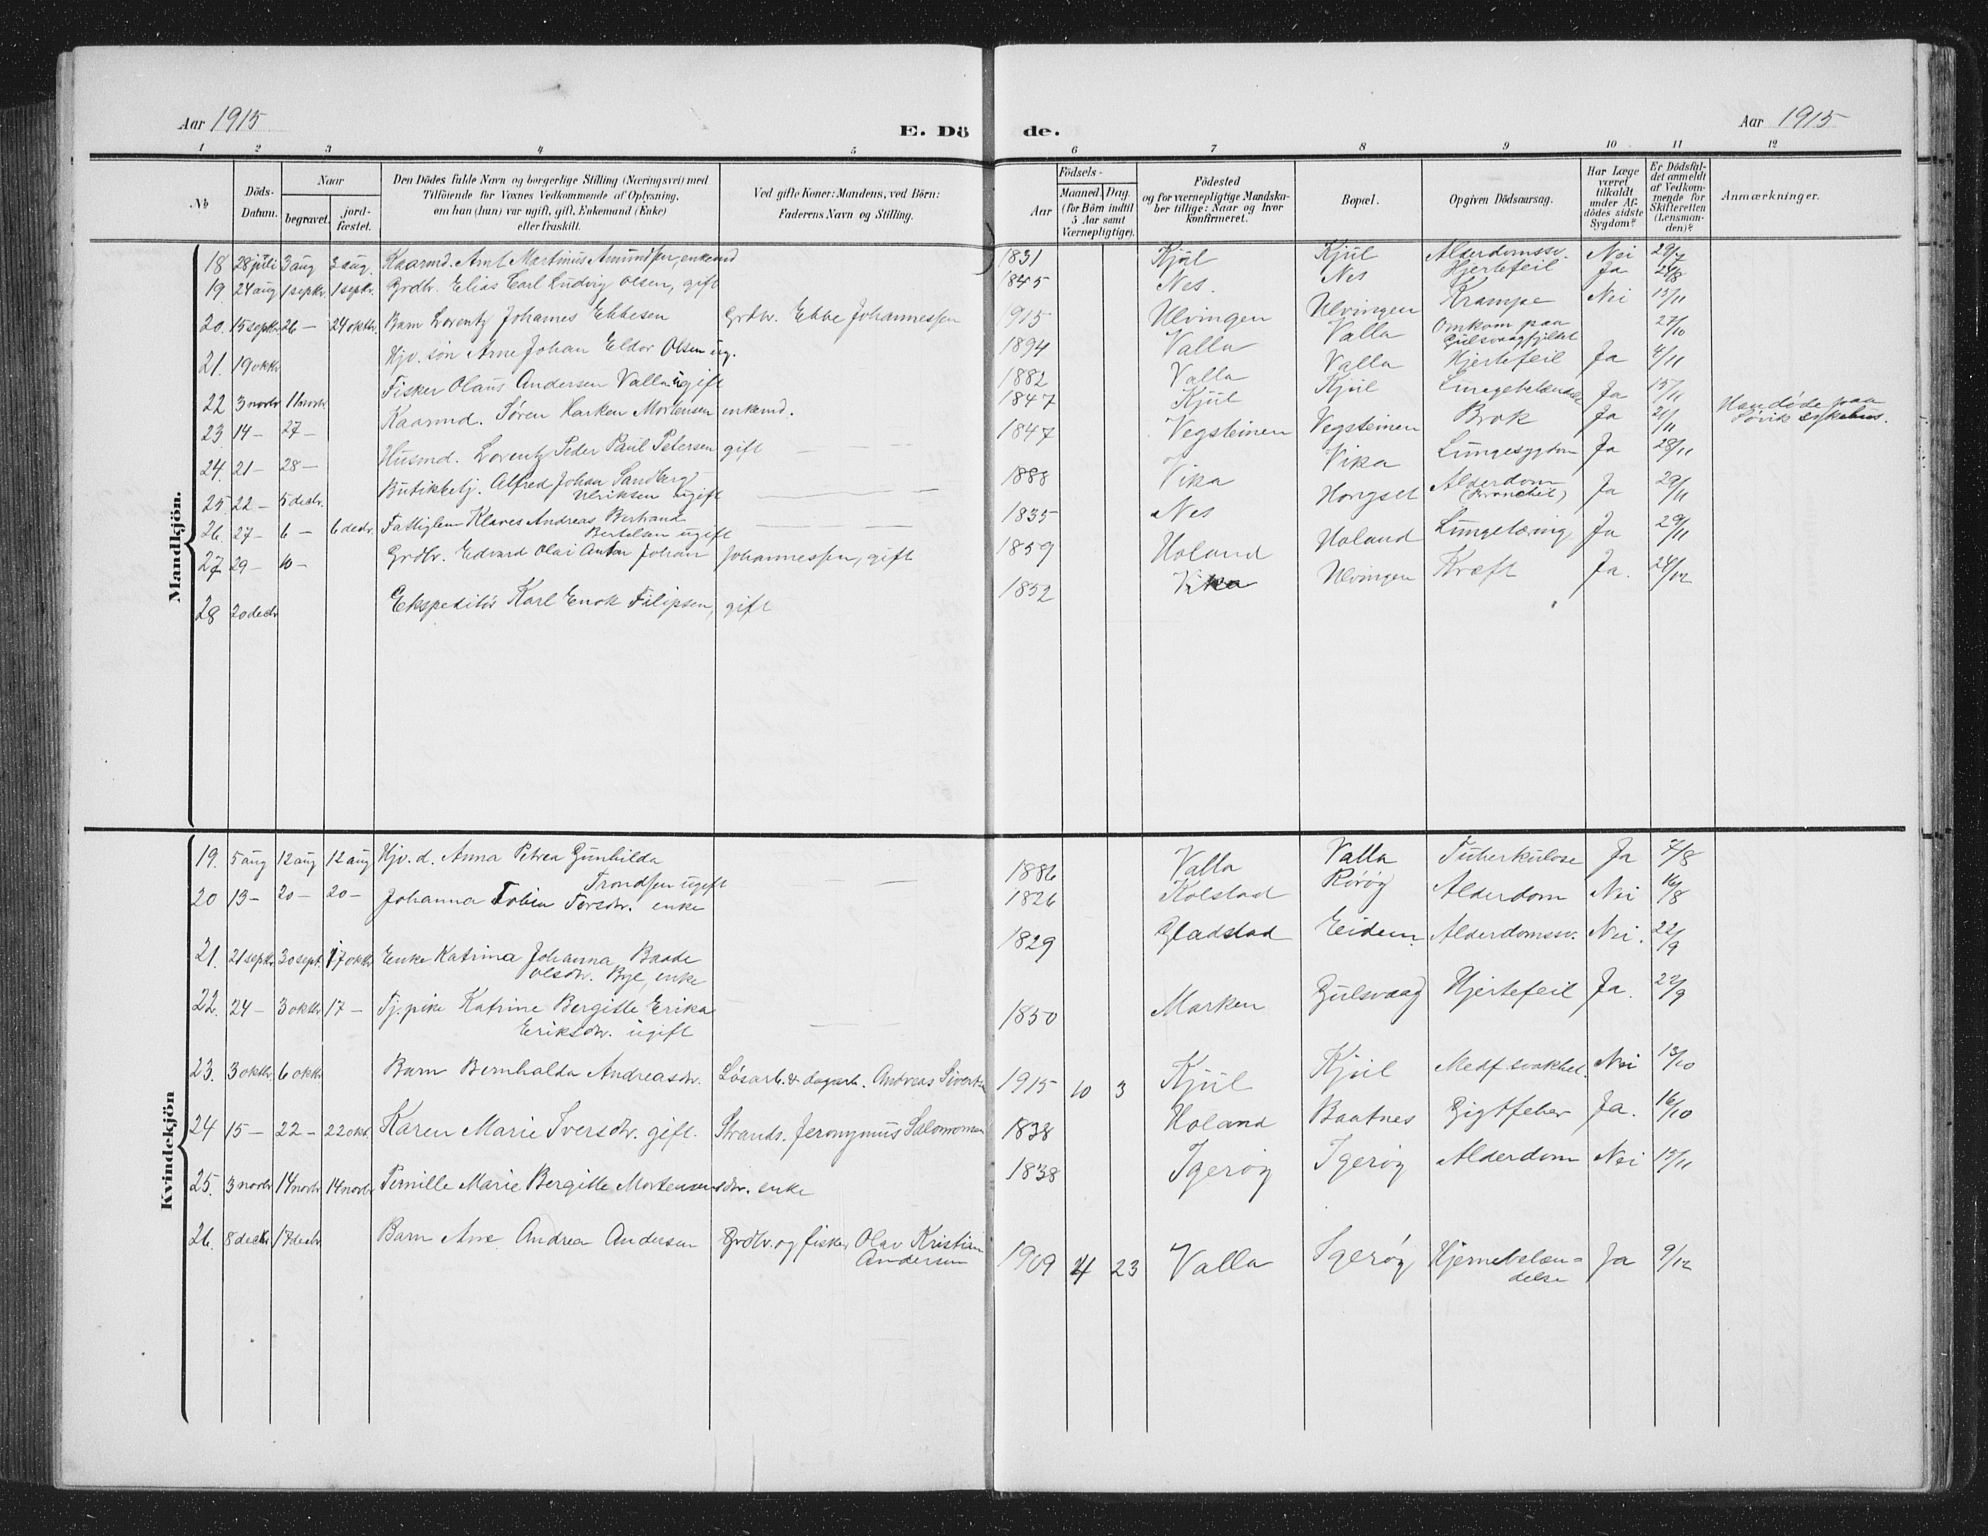 Aar 1915
E. Dö de.
Aar 1915
1 2 3 4 5 6 7 8 9 10 11 12
№
Döds-Datum.
Naar
begravet.
jord-fæstet.
Den Dödes fulde Navn og borgerlige Stilling (Næringsvei) med
Tilföiende for Voxnes Vedkommende af Oplysning,
om han (hun) var ugift, gift, Enkemand (Enke)
eller fraskilt.
Ved gifte Koner: Mandens, ved Börn:
Faderens Navn og Stilling.
Födsels-
Aar
Maaned. Dag.
(for Börn indtil
5 Aar samt
Værnepligtige).
Födested
og for værnepligtige Mandska-
ber tillige: Naar og hvor
konfirmeret.
Bopæl.
Opgiven Dödsaarsag.
Har Læge
været
tilkaldt
under Af-
dödes sidste
Sygdom?
Er Dödsfal-
det anmeldt
af Vedkom-
mende for
Skifteretten
(Lensman-
den)?
Anmærkninger.
Mandkjön.
18 28 juli 3 aug 3 aug. Kaarmd. Arnt Martinus Amundsen, enkemd 1831 Kjúl Kjúl Alderdomssv. Nei 29/7
19 24 aug 1 septbr. 1 septbr. Grdbr. Elias Carl Ludvig Olsen, gift 1845 Nes. Nes Hjertefeil Ja 24/8
20. 15 septbr 26 — 24 oktbr. Barn Lorentz Johannes Ebbesen Grdbr. Ebbe Johannessen 1915 Ulvingen Ulvingen Krampe Nei 15/11
21. 19 oktbr. Gjv. søn Arne Johan Eldor Olsen ug. 1894 Valla Valla Omkom paa Gulsvaagfjeldet 27/10
22 3 novbr 11 novbr. Fisker Olaus Andersen Valla ugift 1882 Valla Valla Hjertefeil Ja 4/11
23 14 — 27 — Kaarmd. Søren Harken Mortensen enkemd. 1847 Kjúl Kjúl Lungebetændelse Ja 15/11
24. 21 — 28 — Husmd. Lorentz Peder Paul Petersen gift 1847 Vegsteinen Vegsteinen Brok Ja 21/11 Han døde paa Søvik sykehus.
25. 22 — 5 decbr. Butikkbetj. Alfred Johan Sandberg
Ulriksen ugift — — — 1888 Vika Vika Lungesygdom Ja 28/11
26. 27 — 6 — 6 decbr. Fattiglem Klaves Andreas Bertrand
Bertelsen ugift — — — 1835 Nes Hongset Alderdom (Bronchit) Ja 29/11
27 29 — 10 — Grdbr. Edvard Olai Anton Johan Johannessen, gift 1859 Holand Holand Lungetæring Ja 29/11
28 20 decbr Ekspeditør Karl Enok Filipsen, gift 1852 Vika Ulvingen Kræft Ja. 24/12
Kvindekjön
19. 5 aug 12 aug 12 aug Gjv. d. Anna Petrea Gunhilda
Trondsen ugift — — — 1886 Valla Valla Tuberkulose Ja 7/8
20 13 — 20 — 20 — Johanna Tobia Torsdtr. enke 1826 Kolstad Rørøy Alderdom Nei 16/8
21. 21 septbr 30 septbr. 17 oktbr Enke Katrina Johanna Baade
Olsdtr. Bye, enke 1829 Gladstad Eidem. Alderdomssv. Nei. 22/9
22. 24 — 3 oktbr 17 — Tj. pike Katrine Bergitte Erika
Eriksdtr. ugift — — — 1850 Marken Gulsvaag Hjertefeil Ja. 22/9
23. 3 oktbr. 6 oktbr Barn Bernhalda Andreasdtr. Løsarb. & dagarb. Andreas Sivertsen 1915 10 3 Kjúl Kjúl Medf. svakhet. Nei 13/10
24 15 — 22 — 22 okt. Karen Marie Iversdtr. gift. Strands. Jeronymus Salomonsen 1838 Holand Baatnes Gigtfeber Ja. 16/10
25. 3 novbr 14 novbr 14 novbr Pernille Marie Bergitte Mortensensdtr. enke 1838 Igerøy Igerøy Alderdom Nei 15/11
26. 8 decbr 17 decbr. Barn Ane Andrea Andersen Grdbr. og fisker Olav Kristian
Andersen 1909 4 23 Valla Igerøy Hjernebetæn-
delse Ja 9/12